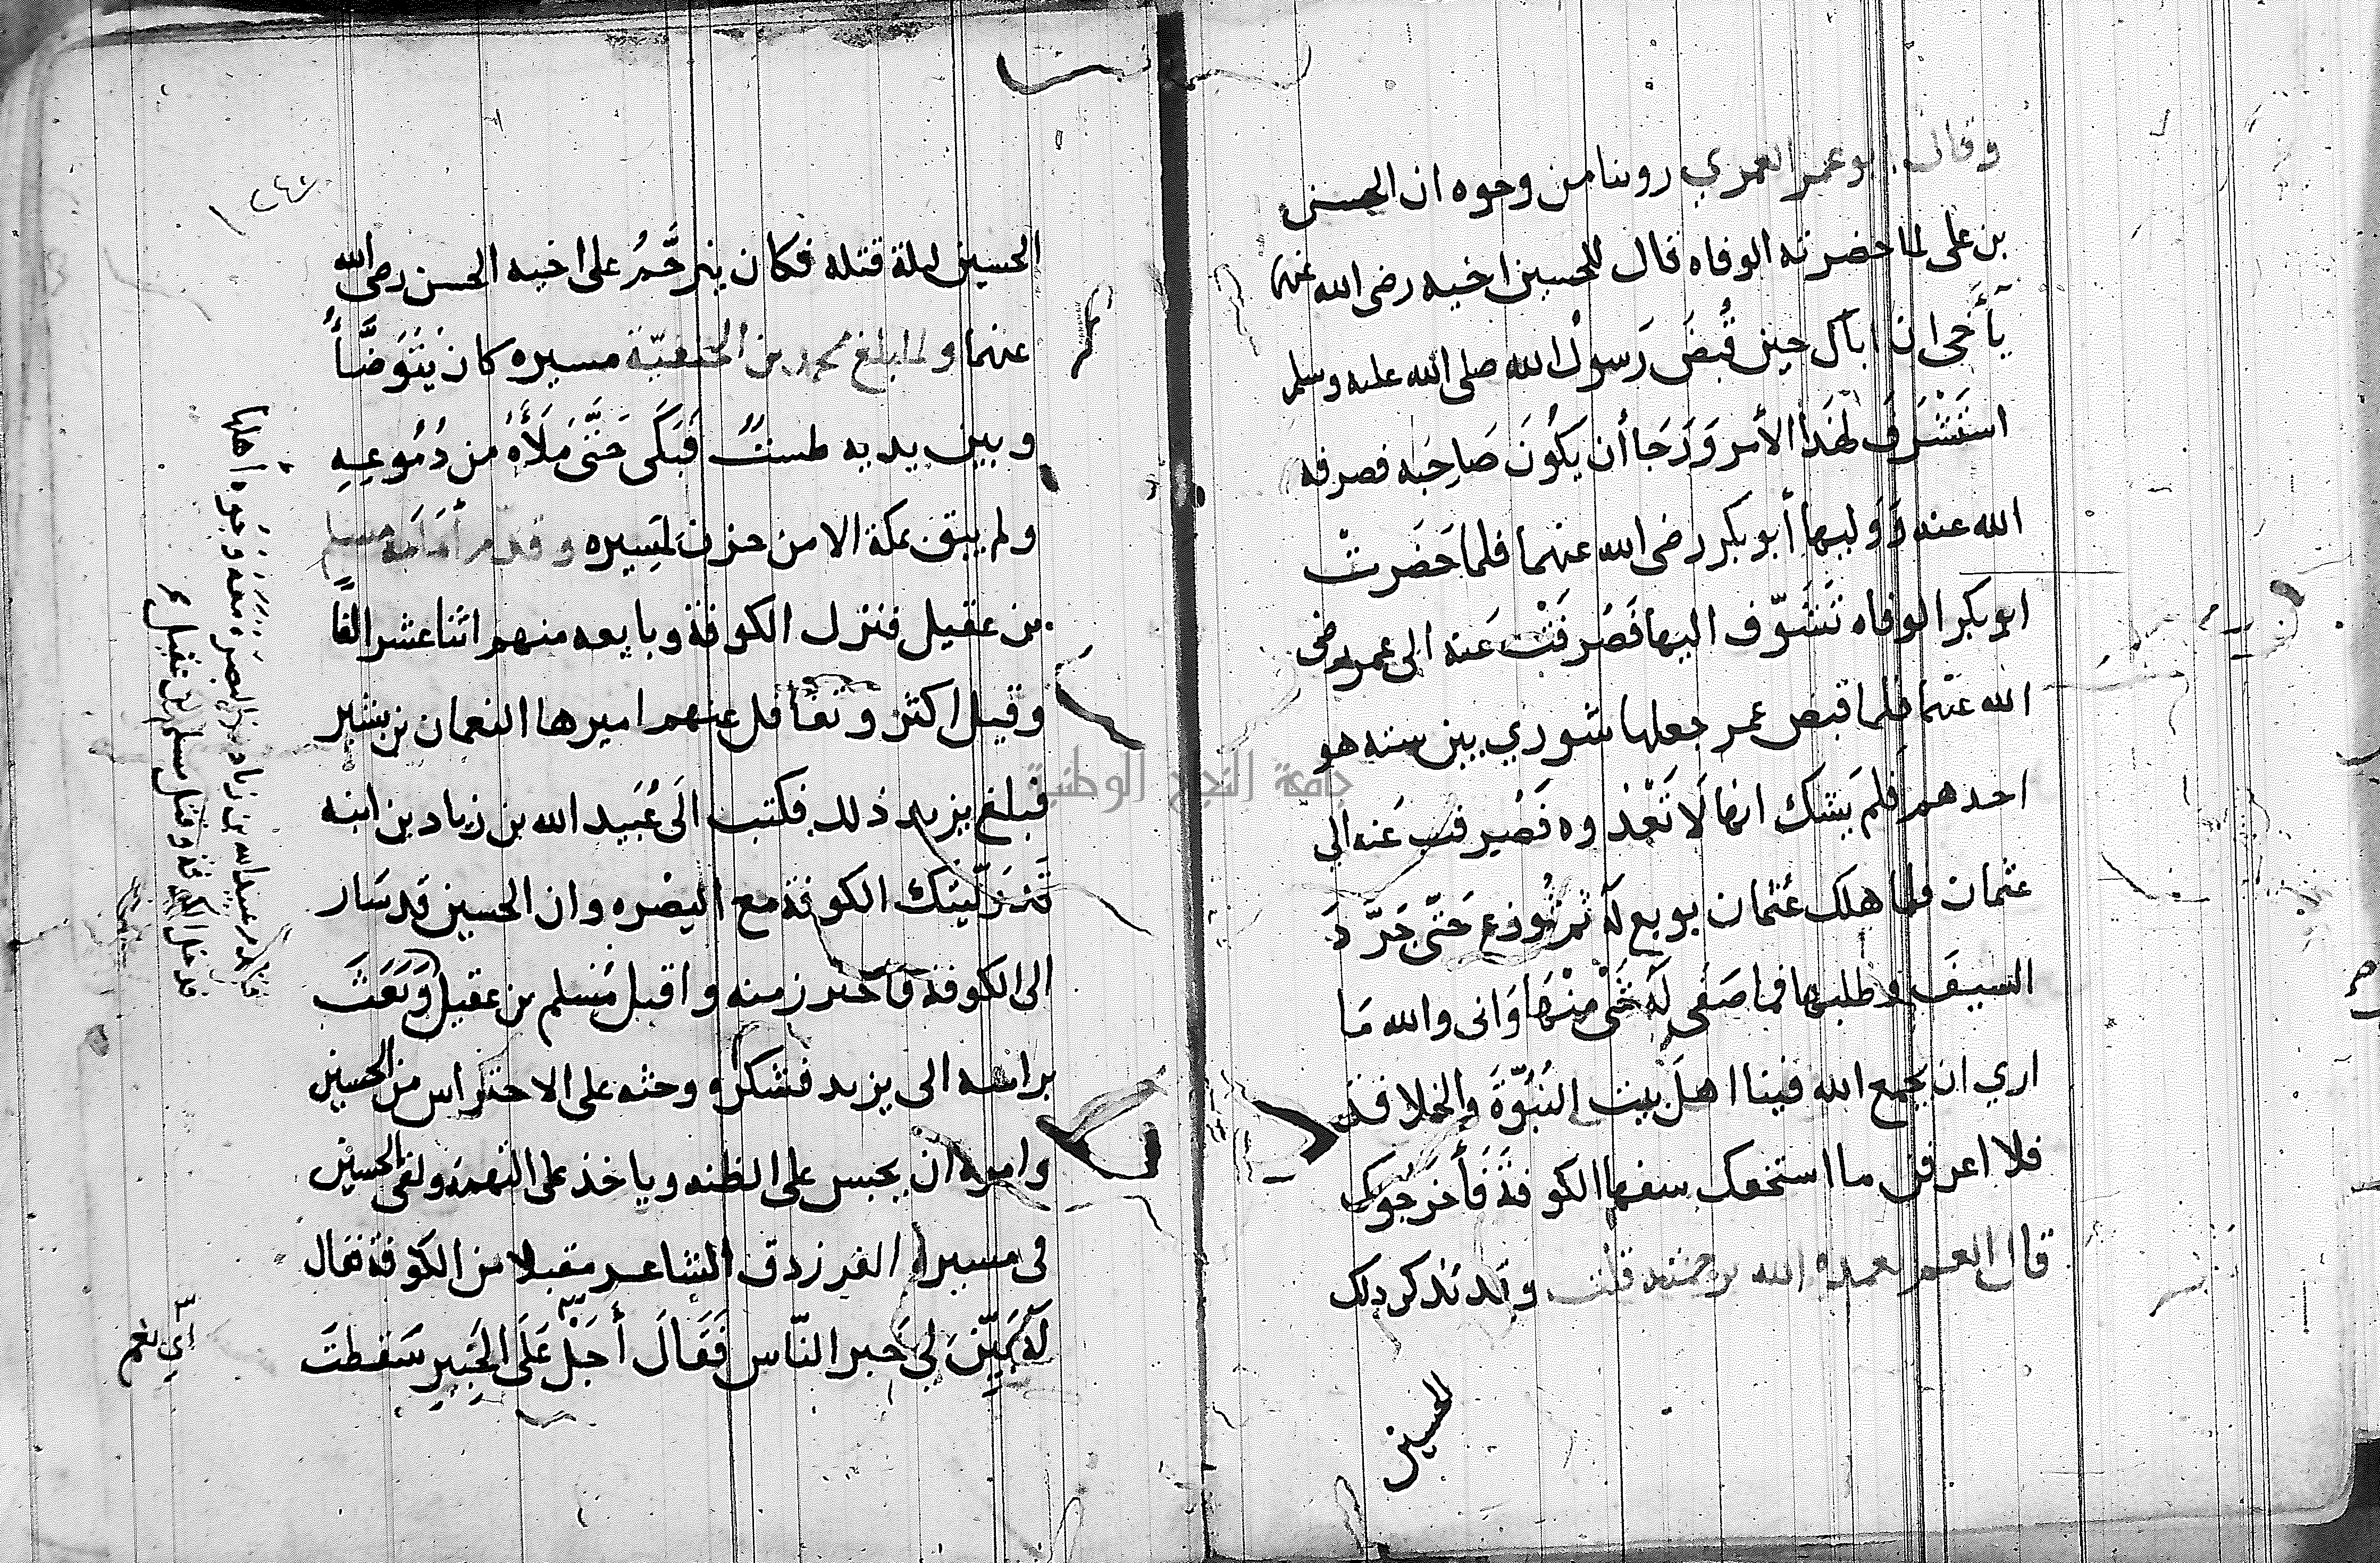 وقال ابو عمر العمري روينا من وجوه ان الحسن
بن على لما حضرته الوفاه قال للحسين اخيه رضى الله عنهما
يأخى ان اباك حين قُبضَ رَسولُ الله صلى الله عليه وسلم
استَشْرَفَ لهَذا الأمر وَرَجَا أن يكُونَ صَاحِبَه فصرفه
الله عنه وَوَليها أبو بكر رضى الله عنهما فلما حَضَرتْ
ابو بكر الوفاه تَشَوّف اليها فَصُرفَتْ عَنه الى عمر رضى
الله عنهما فلما قبض عمر جعلها شوري بين سته هو
احدهم فلم يَشك انها لا تَعْدوه فَصُرفت عَنه الي
عثمان فلما هلك عُثمان بويع لَهُ ثم نُوزع حَتّى جَرَّدَ
السيفَ وطلبها فما صَفَى لَهُ شَىْ مِنْهَا وَانى والله مَا
اري ان يجمع الله فينا اهلَ بيت النُبُوّةَ والخلافة
فلا اعرفن ما استخفك سفها الكوفة فَأخرَجوك
قال العمر تغمده الله برحمته قلت وقد تذكر ذلك
الحسين
الحسين ليلة قتله فكان يترحَّمُ على اخيه الحسن رضى الله
عنهما ولما بلغ محمد بن الحنفيّة مسيره كان يَتَوَضَّأُ
وبين يديه طستٌ فَبَكَى حَتَّى مَلأَهُ من دُمُوعِهِ
ولم يبق بمكة الا من حزن لمَسِيره وقدم أمَامَهُ مسلم
بن عقيل فنزل الكوفة وبايعه منهم اثنا عشر الفاً
وقيل اكثر وتغافل عنهم اميرها النعمان بن بشير
فبلغ يزيد ذلك فكتب الَى عُبَيد الله بن زياد بن ابيه
قَد وَلّيتك الكوفة مع البصْره وان الحسين قد سَار
الى الكوفة فاحترز منه واقبل مُسْلم بن عقيل وَبَعَثَ
براسه الى يزيد فشكره وحثه على الاحتراس من الحسين
وامره ان يحبس على الظنه وياخذ على التهمة ولقى الحسين
فى مسيره الفرزدق الشاعر مقبلا من الكوفة فقال
لَهُ بَيِّن لي خبر النّاس فَقَالَ أجَلْ عَلَى الخَبير سَقطتَ
اي نعم
عبيد الله بن زياد من البصرَه ومعه وجوه اهلها
دخل الكوفة وقتل مسلم بن عقيل
جامعة النجاح الوطنية